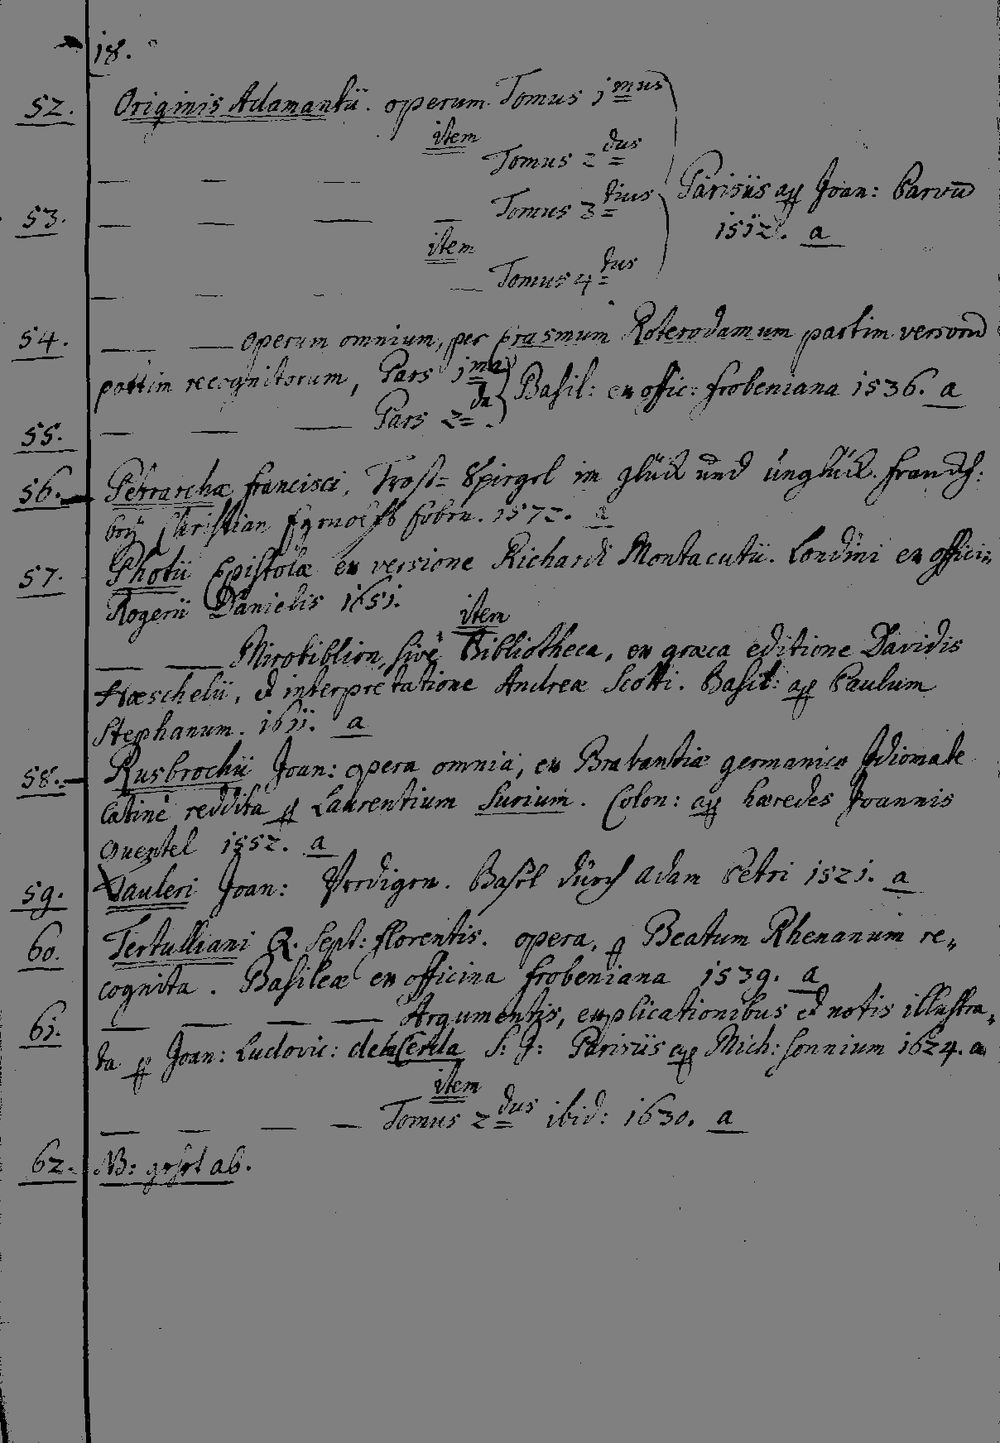 18.
52. Originis Adamantii. operum. Tomus 1mus
item
Tomus 2dus
Parisiis apud Joan: Parvu
53. Tomus 3tius
1512. a
item
Tomus 4tus
54. operum omnium, per Erasmum Roterodamum partim versoru
partim recognitorum, Pars 1ma
Basil: ex offic: frobeniana 1536. a
55. Pars 2da.
56. Petrarchæ francisci, Trost-Spiegel in glück und unglück. franckf:
bey Christian Egenolffs Erben. 1572. a
57. Photii Epistolæ ex versione Richardi Montacutii. Londini ex offici=
Rogerii Danielis 1651.
item
Mirobiblion, sivè Bibliotheca, ex græca editione Davidis
Hœschelii, et interpretatione Andreæ Scotti. Basil: ap Paulum
Stephanum. 1611. a
58. Rusbrochii Joan: opera omnia, ex Brabantiæ germanico Idiomate
Latinè reddita p Laurentium Surium. Colon: ap hæredes Joannis
Quentel 1552. a
59. Tauleri Joan: Predigen. Basel durch Adam Petri 1521. a
60. Tertulliani Q. Sept: florentis. opera, p Beatum Rhenanum re=
cognita. Basileæ ex officina frobeniana 1539. a
61. Argumentis, explicationibus et notis illustra=
ta p Joan: Ludovic: de la Cerda S: J: Parisiis ap Mich: Sonnium 1624. a
item
Tomus 2dus ibid: 1630. a
62. NB: gehet ab.